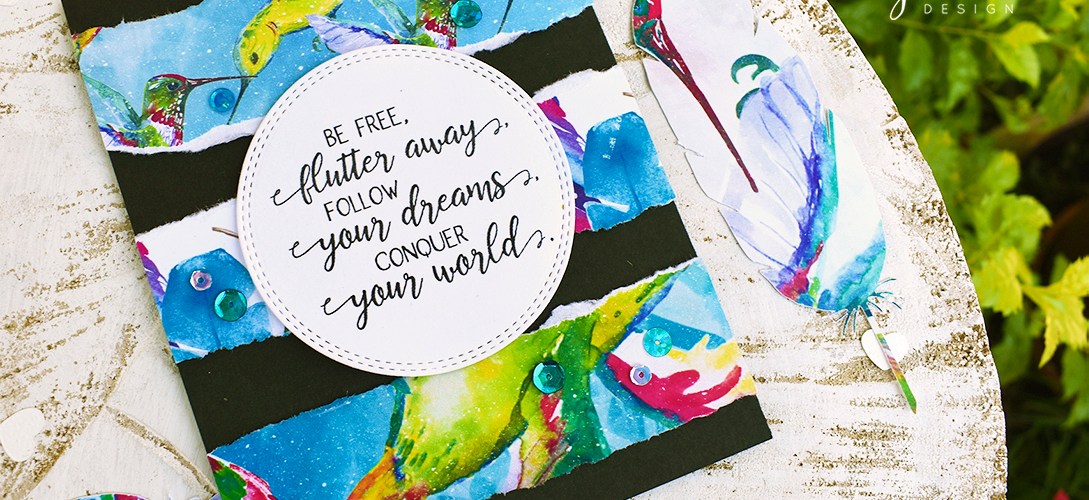 DESIGN
BE FREE,
flutter away,
FOLLOW
your dreams,
CONQUER
your world.